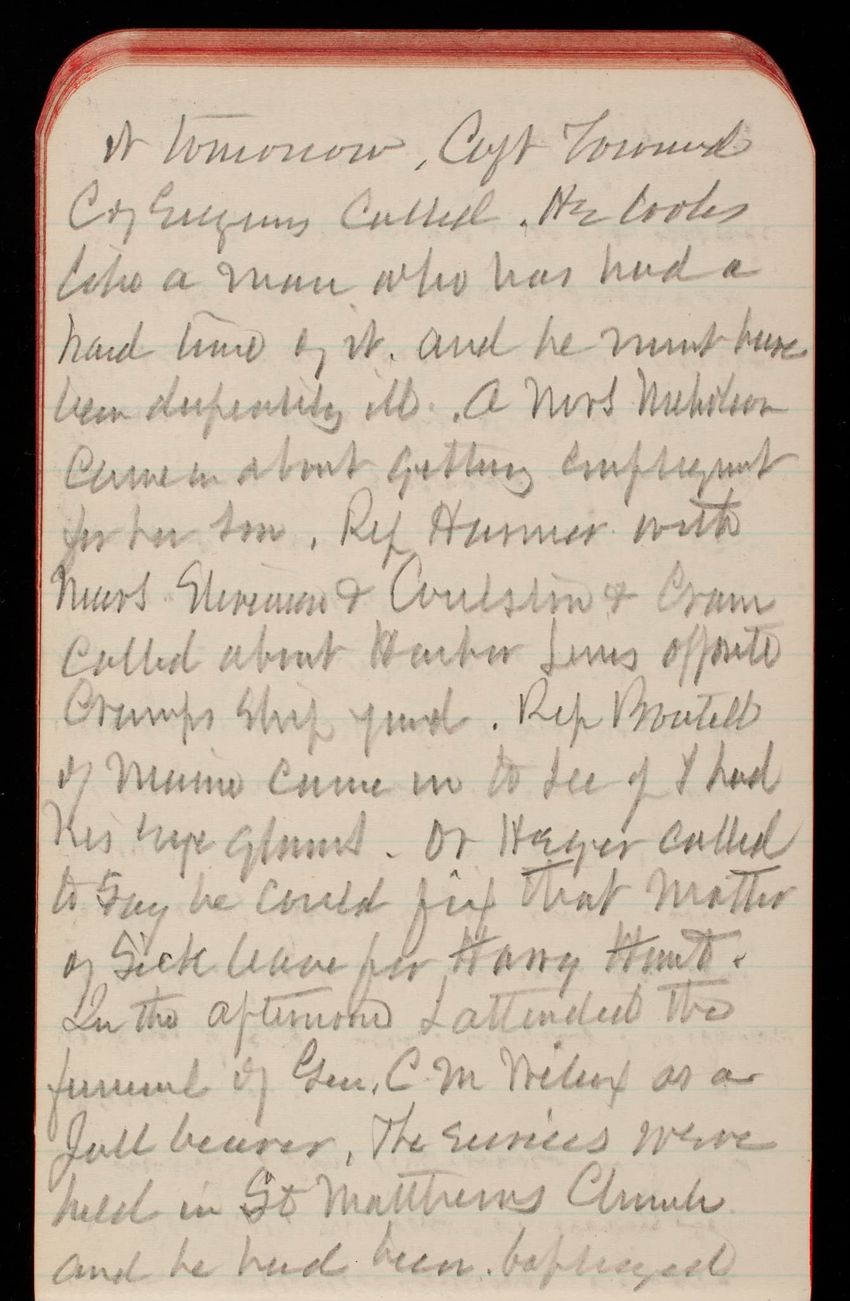 it tomorrow, Capt Townsend
C of Engineers Called. He looks
like a man who has had a
hard time of it. and he must have
been desperately ill. A Mrs Nicholson
Came in about getting employment
for her son, Rep Harmer with
Messrs & Coulston & Cram
Called about Harbor Lines opposite
Cramps Ship yard. Rep Boutell
of Maine came in to see if I had
his eye glasses. Dr Heger called
to say he could fix that matter
of Sick leave for Harry Hunt.
In the afternoon I attended the
funeral of Gen. C M Wilcox as a
Pall bearer, The services were
held in St Matthews Church
and he had been baptized